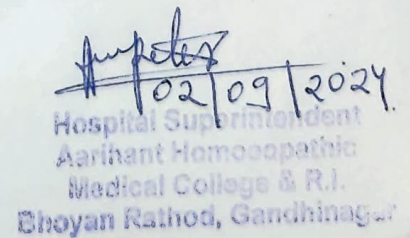 02/09/2024.
Hospital Superintendent
Aarihant Homoeopathic
Medical College & R.I.
Bhoyan Rathod, Gandhinagar